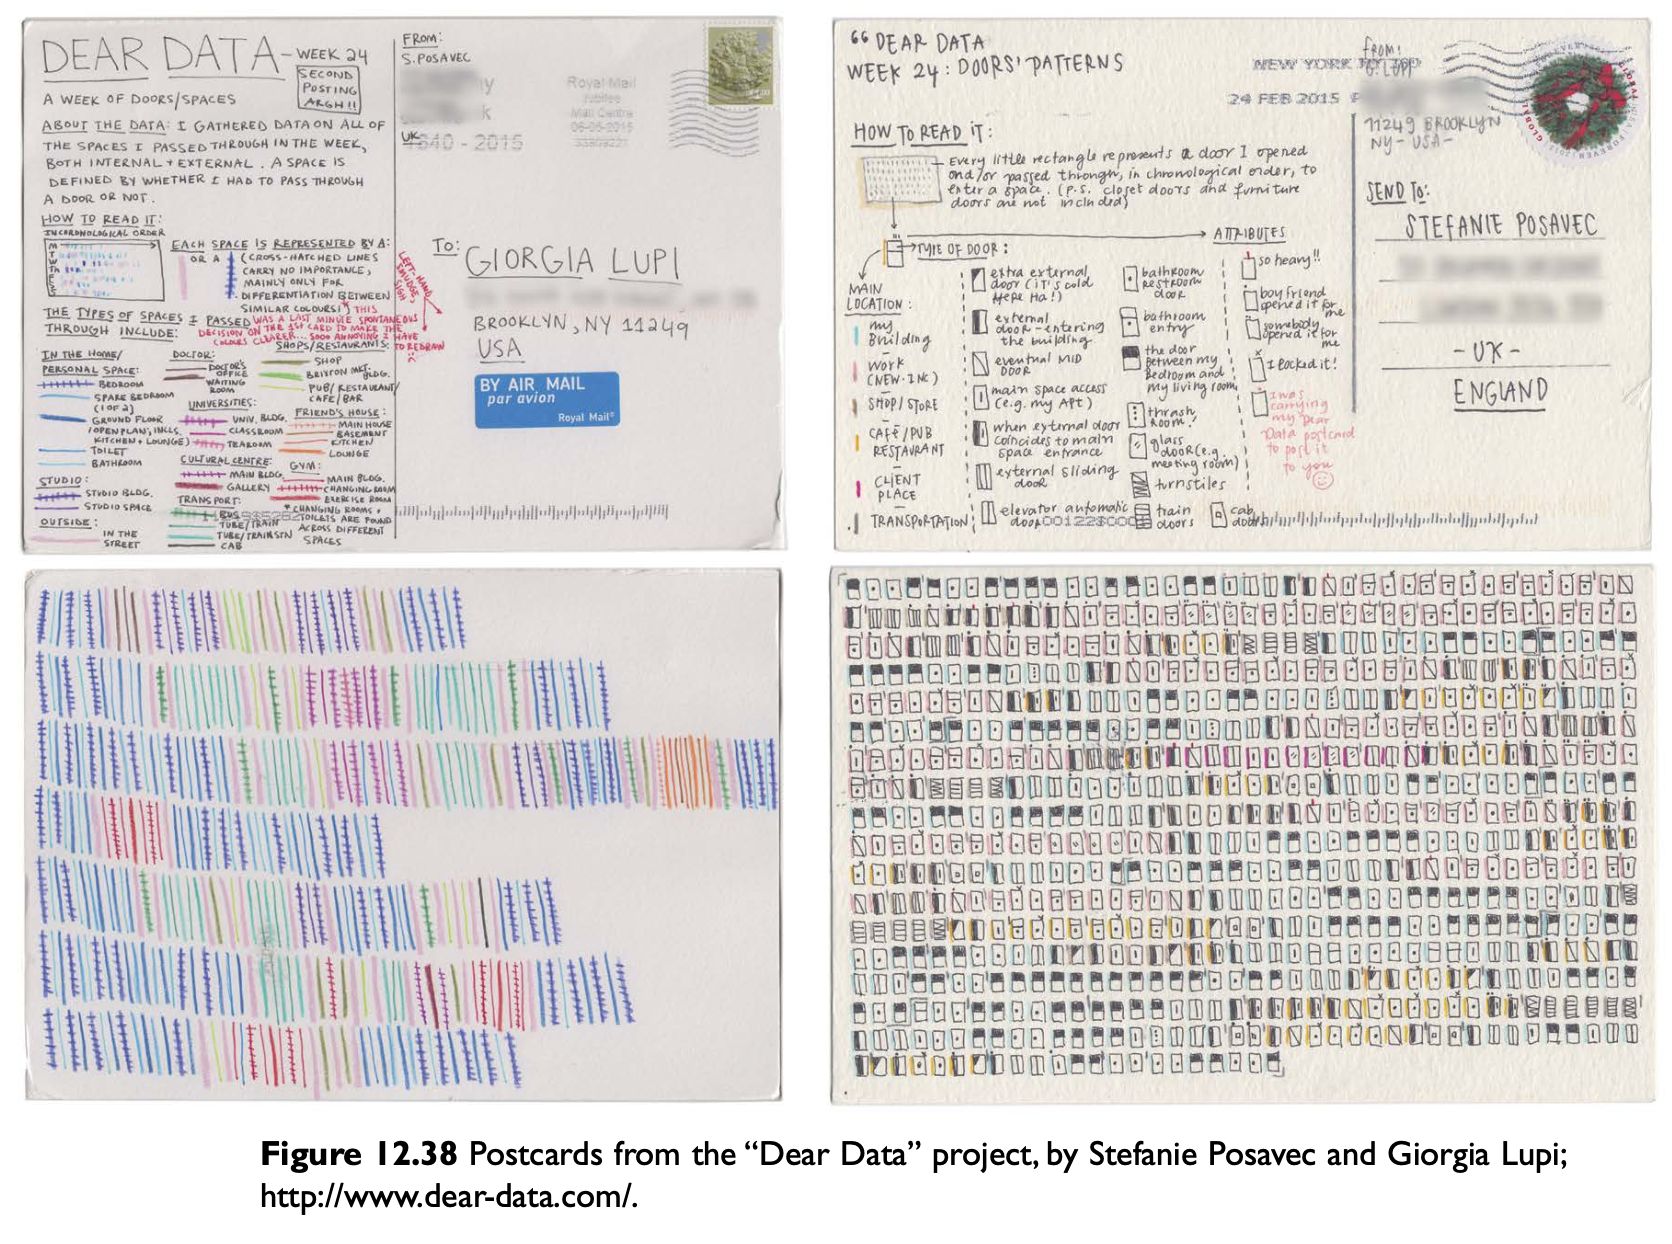 DEAR DATA - WEEK 24
SECOND
POSTING
ARGH!!
A WEEK OF DOORS/SPACES
ABOUT THE DATA: I GATHERED DATA ON ALL OF
THE SPACES I PASSED THROUGH IN THE WEEK,
BOTH INTERNAL + EXTERNAL. A SPACE IS
DEFINED BY WHETHER I HAD TO PASS THROUGH
A DOOR OR NOT.
HOW TO READ IT:
IN CHRONOLOGICAL ORDER
M
T
W
TH
F
S
S
EACH SPACE IS REPRESENTED BY A:
OR A
(CROSS-HATCHED LINES
CARRY NO IMPORTANCE,
MAINLY ONLY FOR
DIFFERENTIATION BETWEEN
SIMILAR COLOURS!) THIS
WAS A LAST MINUTE SPONTANEOUS
DECISION ON THE 1ST CARD TO MAKE THE
COLOURS CLEARER... SOOO ANNOYING I HAVE
TO REDRAW
:(
LEFT-HAND
SMUDGE,
SIGH
THE TYPES OF SPACES I PASSED
THROUGH INCLUDE:
IN THE HOME/
PERSONAL SPACE:
BEDROOM
SPARE BEDROOM
(1 OF 2)
GROUND FLOOR
(OPEN PLAN, INCLS.
KITCHEN + LOUNGE)
TOILET
BATHROOM
STUDIO:
STUDIO BLDG.
STUDIO SPACE
OUTSIDE:
IN THE
STREET
DOCTOR:
DOCTOR'S
OFFICE
WAITING
ROOM
UNIVERSITIES:
UNIV. BLDG.
CLASSROOM
TEAROOM
CULTURAL CENTRE:
MAIN BLDG.
GALLERY
TRANSPORT:
BUS
TUBE/TRAIN
TUBE/TRAIN STN
CAB
SHOPS/RESTAURANTS:
SHOP
BRIXTON MKT.
BLDG.
PUB/RESTAURANT/
CAFE/BAR
FRIEND'S HOUSE:
MAIN HOUSE
BASEMENT
KITCHEN
LOUNGE
GYM:
MAIN BLDG.
CHANGING ROOM
EXERCISE ROOM
*CHANGING ROOMS +
TOILETS ARE FOUND
ACROSS DIFFERENT
SPACES
FROM:
S. POSAVEC
UK
1840 - 2015
Royal Mail
Jubilee
Mail Centre
TO: GIORGIA LUPI
BROOKLYN, NY 11249
USA
BY AIR MAIL
par avion
Royal Mail®
"DEAR DATA
WEEK 24: DOORS' PATTERNS
FROM:
G. LUPI
NEW YORK
24 FEB 2015
11249 BROOKLYN
NY - USA -
FOREVER
GLOBAL
HOW TO READ IT:
Every little rectangle represents a door I opened
and/or passed through, in chronological order, to
enter a space. (P.S. closet doors and furniture
doors are not included)
MAIN
LOCATION:
my
Building
WORK
(NEW-INC)
SHOP/STORE
CAFÉ/PUB
RESTAURANT
CLIENT
PLACE
TRANSPORTATION
TYPE OF DOOR:
extra external
door (it's cold
HERE Ha!)
external
door - entering
the building
eventual MID
DOOR
main space access
(e.g. my APT)
when external door
coincides to main
space entrance
external sliding
door
elevator automatic
door
bathroom
restroom
door
bathroom
entry
the door
between my
bedroom and
my living room
thrash
room!
glass
door (e.g.
meeting room)
turnstiles
train
doors
cab
doors
ATTRIBUTES
so heavy!!
boyfriend
opened it for
me
somebody
opened it for
me
I locked it!
I was
carrying
my Dear
Data postcard
to post it
to you
SEND TO:
STEFANIE POSAVEC
- UK -
ENGLAND
Figure 12.38 Postcards from the “Dear Data” project, by Stefanie Posavec and Giorgia Lupi;
http://www.dear-data.com/.